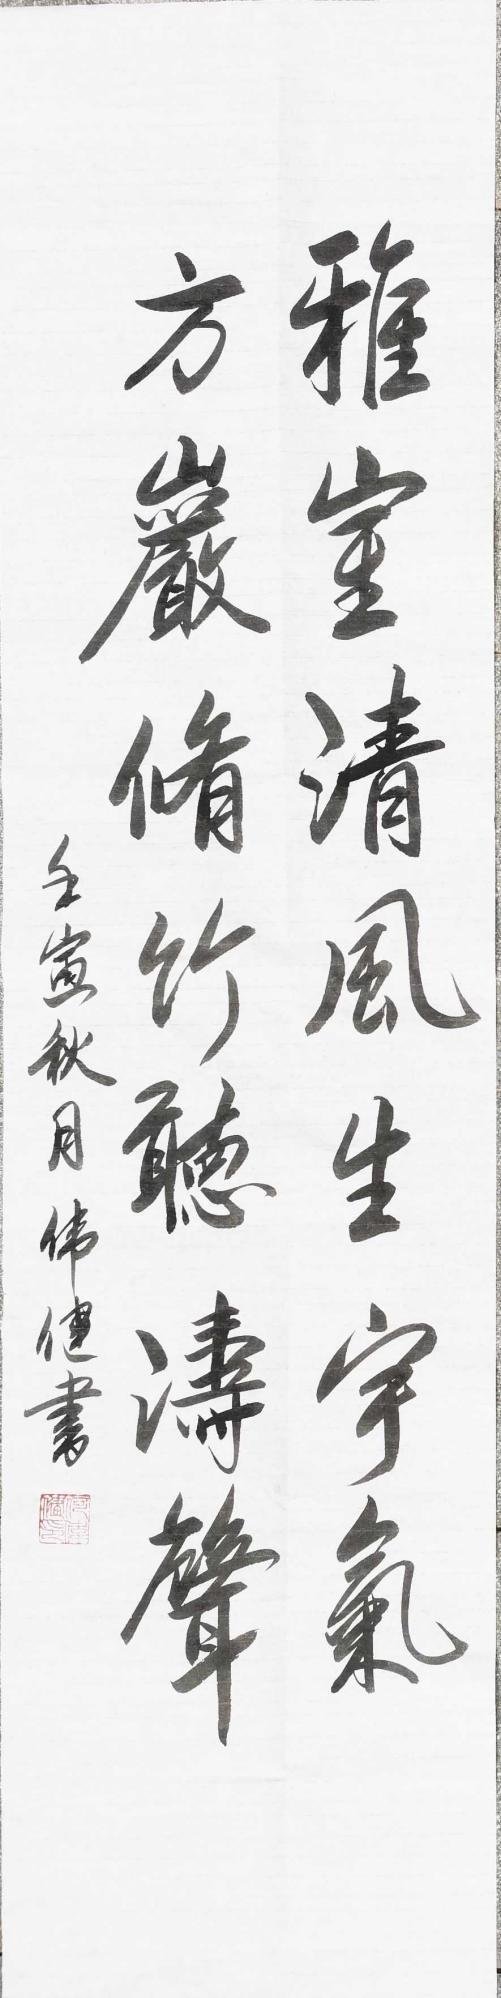 雅室清風生宇氣
方巖脩竹聽濤聲
壬寅秋月伟健書